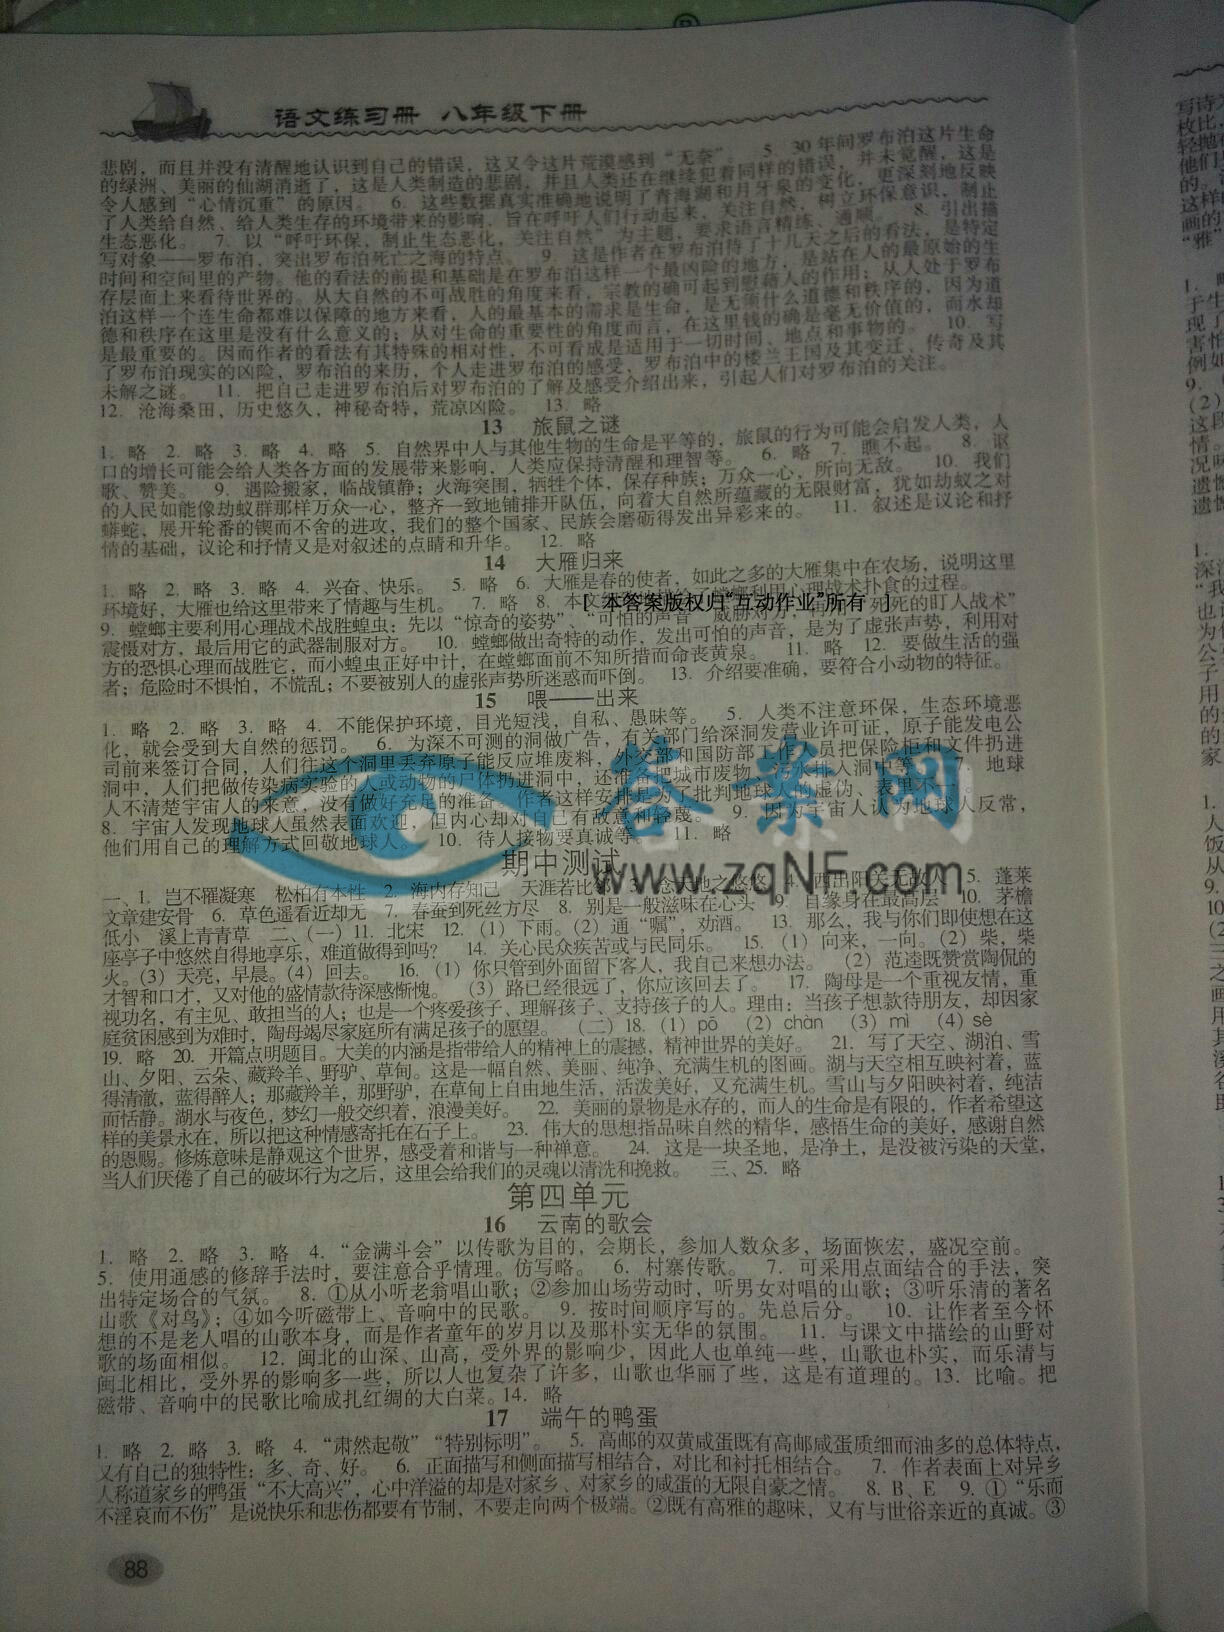 语文练习册 八年级下册
悲剧，而且并没有清醒地认识到自己的错误，这又令这片荒漠感到“无奈”。 5. 30年间罗布泊这片生命
的绿洲、美丽的仙湖消逝了，这是人类制造的悲剧，并且人类还在继续犯着同样的错误，并未觉醒，这是
令人感到“心情沉重”的原因。 6. 这些数据真实准确地说明了青海湖和月牙泉的变化，更深刻地反映
了人类给自然、给人类生存的环境带来的影响，旨在呼吁人们行动起来，关注自然，树立环保意识，制止
生态恶化。 7. 以“呼吁环保，制止生态恶化，关注自然”为主题，要求语言精练、通顺。 8. 引出描
写对象——罗布泊，突出罗布泊死亡之海的特点。 9. 这是作者在罗布泊待了十几天之后的看法，是特定
时间和空间里的产物。他的看法的前提和基础是在罗布泊这样一个最凶险的地方，是站在人的最原始的生
存层面上来看待世界的。从大自然的不可战胜的角度来看，宗教的确可起到慰藉人的作用；从人处于罗布
泊这样一个连生命都难以保障的地方来看，人的最基本的需求是生命，是无须什么道德和秩序的，因为道
德和秩序在这里是没有什么意义的；从对生命的重要性的角度而言，在这里钱的确是毫无价值的，而水却
是最重要的。因而作者的看法有其特殊的相对性，不可看成是适用于一切时间、地点和事物的。 10. 写
了罗布泊现实的凶险，罗布泊的来历，个人走进罗布泊的感受，罗布泊中的楼兰王国及其变迁、传奇及其
未解之谜。 11. 把自己走进罗布泊后对罗布泊的了解及感受介绍出来，引起人们对罗布泊的关注。
12. 沧海桑田，历史悠久，神秘奇特，荒凉凶险。 13. 略
13 旅鼠之谜
1. 略 2. 略 3. 略 4. 略 5. 自然界中人与其他生物的生命是平等的，旅鼠的行为可能会启发人类，人
口的增长可能会给人类各方面的发展带来影响，人类应保持清醒和理智等。 6. 略 7. 瞧不起。 8. 讴
歌、赞美。 9. 遇险搬家，临战镇静；火海突围，牺牲个体，保存种族；万众一心，所向无敌。 10. 我们
的人民如能像劫蚁群那样万众一心，整齐一致地铺排开队伍，向着大自然所蕴藏的无限财富，犹如劫蚁之对
蟒蛇，展开轮番的锲而不舍的进攻，我们的整个国家、民族会磨砺得发出异彩来的。 11. 叙述是议论和抒
情的基础，议论和抒情又是对叙述的点睛和升华。 12. 略
14 大雁归来
1. 略 2. 略 3. 略 4. 兴奋、快乐。 5. 略 6. 大雁是春的使者，如此之多的大雁集中在农场，说明这里
环境好，大雁也给这里带来了情趣与生机。 7. 略 8. 本文 螳螂利用心理战术扑食的过程。
[ 本答案版权归“互动作业”所有 ]
9. 螳螂主要利用心理战术战胜蝗虫：先以“惊奇的姿势”、“可怕的声音”威胁对方， 死死的盯人战术”
震慑对方，最后用它的武器制服对方。 10. 螳螂做出奇特的动作，发出可怕的声音，是为了虚张声势，利用对
方的恐惧心理而战胜它，而小蝗虫正好中计，在螳螂面前不知所措而命丧黄泉。 11. 略 12. 要做生活的强
者；危险时不惧怕，不慌乱；不要被别人的虚张声势所迷惑而吓倒。 13. 介绍要准确，要符合小动物的特征。
15 喂——出来
1. 略 2. 略 3. 略 4. 不能保护环境，目光短浅，自私、愚昧等。 5. 人类不注意环保，生态环境恶
化，就会受到大自然的惩罚。 6. 为深不可测的洞做广告，有关部门给深洞发营业许可证，原子能发电公
司前来签订合同，人们往这个洞里丢弃原子能反应堆废料，外交部和国防部工作人员把保险柜和文件扔进
洞中，人们把做传染病实验的人或动物的尸体扔进洞中，还准备把城市废物、 水排入洞中等。 7. 地球
人不清楚宇宙人的来意，没有做好充足的准备。作者这样安排是为了批判地球人 虚伪、表里不
8. 宇宙人发现地球人虽然表面欢迎，但内心却对自己有敌意和轻蔑。 9. 因为宇宙人认为地球人反常，
他们用自己的理解方式回敬地球人。 10. 待人接物要真诚等。 11. 略
答案网
www.zqNF.com
期中测试
一、1. 岂不罹凝寒 松柏有本性 2. 海内存知己 天涯若比邻 3. 念天地之悠悠 4. 西出阳关无故人 5. 蓬莱
文章建安骨 6. 草色遥看近却无 7. 春蚕到死丝方尽 8. 别是一般滋味在心头 9. 自缘身在最高层 10. 茅檐
低小 溪上青青草 二、(一) 11. 北宋 12. (1) 下雨。(2) 通“嘱”，劝酒。 13. 那么，我与你们即使想在这
座亭子中悠然自得地享乐，难道做得到吗？ 14. 关心民众疾苦或与民同乐。 15. (1) 向来，一向。(2) 柴，柴
火。(3) 天亮，早晨。(4) 回去。 16. (1) 你只管到外面留下客人，我自己来想办法。 (2) 范逵既赞赏陶侃的
才智和口才，又对他的盛情款待深感惭愧。 (3) 路已经很远了，你应该回去了。 17. 陶母是一个重视友情，重
视功名，有主见、敢担当的人；也是一个疼爱孩子、理解孩子、支持孩子的人。理由：当孩子想款待朋友，却因家
庭贫困感到为难时，陶母竭尽家庭所有满足孩子的愿望。 (二) 18. (1) pō (2) chàn (3) mì (4) sè
19. 略 20. 开篇点明题目。大美的内涵是指带给人的精神上的震撼，精神世界的美好。 21. 写了天空、湖泊、雪
山、夕阳、云朵、藏羚羊、野驴、草甸。这是一幅自然、美丽、纯净、充满生机的图画。湖与天空相互映衬着，蓝
得清澈，蓝得醉人；那藏羚羊，那野驴，在草甸上自由地生活，活泼美好，又充满生机。雪山与夕阳映衬着，纯洁
而恬静。湖水与夜色，梦幻一般交织着，浪漫美好。 22. 美丽的景物是永存的，而人的生命是有限的，作者希望这
样的美景永在，所以把这种情感寄托在石子上。 23. 伟大的思想指品味自然的精华，感悟生命的美好，感谢自然
的恩赐。修炼意味是静观这个世界，感受着和谐与一种禅意。 24. 这是一块圣地，是净土，是没被污染的天堂，
当人们厌倦了自己的破坏行为之后，这里会给我们的灵魂以清洗和挽救。 三、25. 略
第四单元
16 云南的歌会
1. 略 2. 略 3. 略 4. “金满斗会”以传歌为目的，会期长，参加人数众多，场面恢宏，盛况空前。
5. 使用通感的修辞手法时，要注意合乎情理。仿写略。 6. 村寨传歌。 7. 可采用点面结合的手法，突
出特定场合的气氛。 8. ①从小听老翁唱山歌；②参加山场劳动时，听男女对唱的山歌；③听乐清的著名
山歌《对鸟》；④如今听磁带上、音响中的民歌。 9. 按时间顺序写的。先总后分。 10. 让作者至今怀
想的不是老人唱的山歌本身，而是作者童年的岁月以及那朴实无华的氛围。 11. 与课文中描绘的山野对
歌的场面相似。 12. 闽北的山深、山高，受外界的影响少，因此人也单纯一些，山歌也朴实，而乐清与
闽北相比，受外界的影响多一些，所以人也复杂了许多，山歌也华丽了些，这是有道理的。13. 比喻。把
磁带、音响中的民歌比喻成扎红绸的大白菜。14. 略
17 端午的鸭蛋
1. 略 2. 略 3. 略 4. “肃然起敬”“特别标明”。 5. 高邮的双黄咸蛋既有高邮咸蛋质细而油多的总体特点，
又有自己的独特性：多、奇、好。 6. 正面描写和侧面描写相结合，对比和衬托相结合。 7. 作者表面上对异乡
人称道家乡的鸭蛋“不大高兴”，心中洋溢的却是对家乡、对家乡的咸蛋的无限自豪之情。 8. B、E 9. ①“乐而
不淫哀而不伤”是说快乐和悲伤都要有节制，不要走向两个极端。②既有高雅的趣味，又有与世俗亲近的真诚。③
88